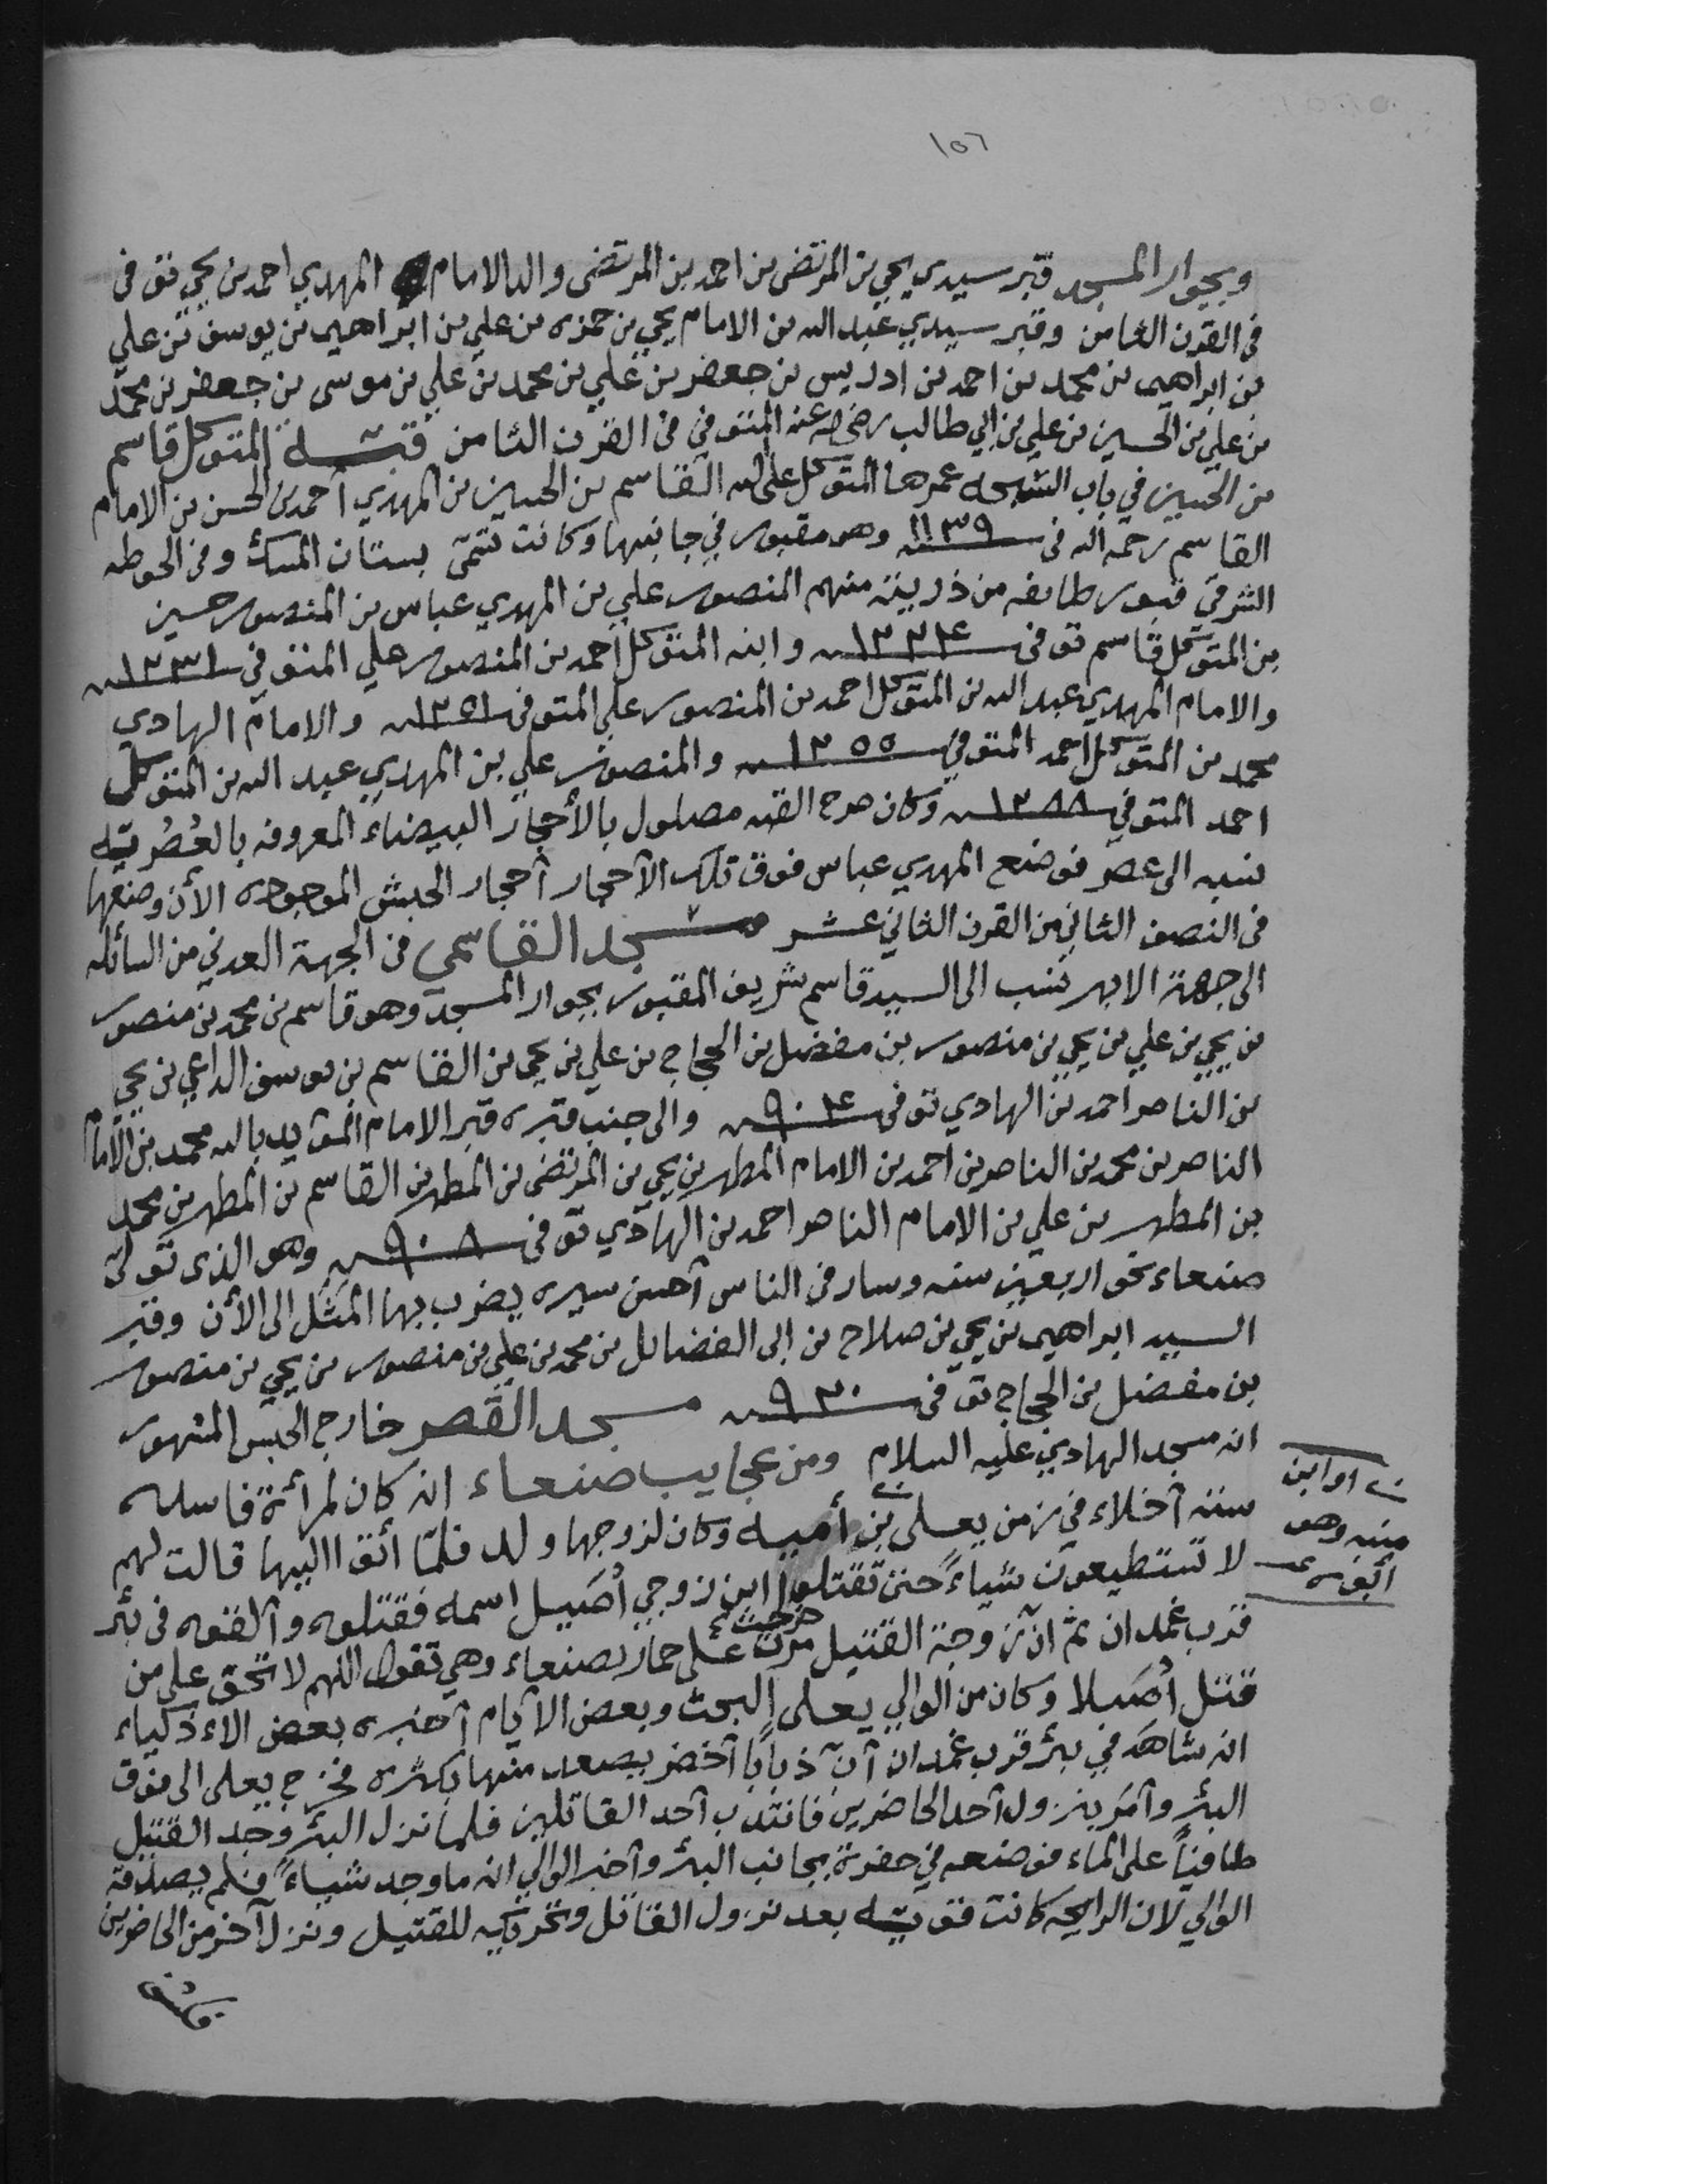 ١٥٦
وبجوار المسجد قبر سيدي يحي بن المرتضى بن احمد بن المرتضى والد الامام المهدي احمد بن يحي توفى
فى القرن الثامن وقبر سيدي عبد الله بن الامام يحي بن حمزه بن علي بن ابراهيم بن يوسف بن علي
بن ابراهيم بن محمد بن احمد بن ادريس بن جعفر بن علي بن محمد بن علي بن موسى بن جعفر بن محمد
بن علي بن الحسين بن علي بن ابي طالب رضي الله عنه المتوفي في القرن الثامن قبة المتوكل قاسم
بن الحسين في باب السبحه عمرها المتوكل على الله القاسم بن الحسين بن المهدي أحمد بن الحسن بن الامام
القاسم رحمه الله فى ١١٣٩ وهو مقبور في جانبها وكانت تسمّى بستان المسك وفى الحوطه
الشرقي قبور طايفه من ذريته منهم المنصور علي بن المهدي عباس بن المنصور حسين
بن المتوكل قاسم توفى ١٢٢٤ وابنه المتوكل احمد بن المنصور علي المتوفي ١٢٣١
والامام المهدي عبد الله بن المتوكل احمد بن المنصور علي المتوفى ١٢٥١ والامام الهادي
محمد بن المتوكل احمد المتوفي ١٢٥٥ والمنصور علي بن المهدي عبد الله بن المتوكل
احمد المتوفي ١٢٨٨ وكان صرح القبه مصلول بالأحجار البيضاء المعروفه بالعُصُريّه
نسبه الى عصر فوضع المهدي عباس فوق تلك الآحجار آحجار الحبش الموجوده الأن وضعها
فى النصف الثاني من القرن الثاني عشر مسجد القاسمي فى الجهة العدني من السائله
الى جهة الابهر نسب الى السيد قاسم شريف المقبور بجوار المسجد وهو قاسم بن محمد بن منصور
بن يحي بن علي بن يحي بن منصور بن مفضل بن الحجاج بن علي بن يحي بن القاسم بن يوسف الداعي بن يحي
بن الناصر احمد بن الهادي توفى ٩٠٤ والى جنب قبره قبر الامام المؤيد بالله محمد بن الامام
الناصر بن محمد بن الناصر بن احمد بن الامام المطهر بن يحي بن المرتضى بن المطهر بن القاسم بن المطهر بن محمد
بن المطهر بن علي بن الامام الناصر احمد بن الهادي توفى ٩٠٨ وهو الذى تولى
صنعاء نحو اربعين سنه وسار فى الناس آحسن سيره يضرب بها المَثَل الى الأن وقبر
السيد ابراهيم بن يحي بن صلاح بن ابى الفضائل بن محمد بن علي بن منصور بن يحي بن منصور
بن مفضل بن الحجاج توفى ٩٣٠ مسجد القصر خارج الحبس المشهور
انه مسجد الهادي عليه السلام ومن عجايب صنعاء انه كان لمرأة فاسده
ستة آخلاء في زمن يعلى بن أميه وكان لزوجها ولد فلمّا أتو اليها قالت لهم
لا تستطيعون شياءً حتى تقتلوا ابن زوجي أُصَيل اسمه فقتلوه وآلقوه فى بئر
قرب غمدان ثم انّ زوجة القتيل مرت خرجت على حمار بصنعاء وهي تقول اللهم لا تخفى على من
قتل أُصَيلا وكان من الوالي يعلى البحث وبعض الآيام آخبره بعض الاءذكياء
انه شاهَد في بئر قرب غمدان آنّ ذباباً آخضر يصعد منها بكثره فخرج يعلى الى فوق
البئر وآمَر بنزول آحد الحاضرين فانتدب آحد القاتلين فلما نزل البئر وجد القتيل
طافياً على الماء فوضعه في حفرة بجانب البئر وآخبر الوالي انه ما وجد شياءً فلم يصدقه
الوالي لان الرايحه كانت قويّه بعد نزول القاتل وتحريكه للقتيل ونزل آخر من الحاضرين
ن او ابن
منبه وهو